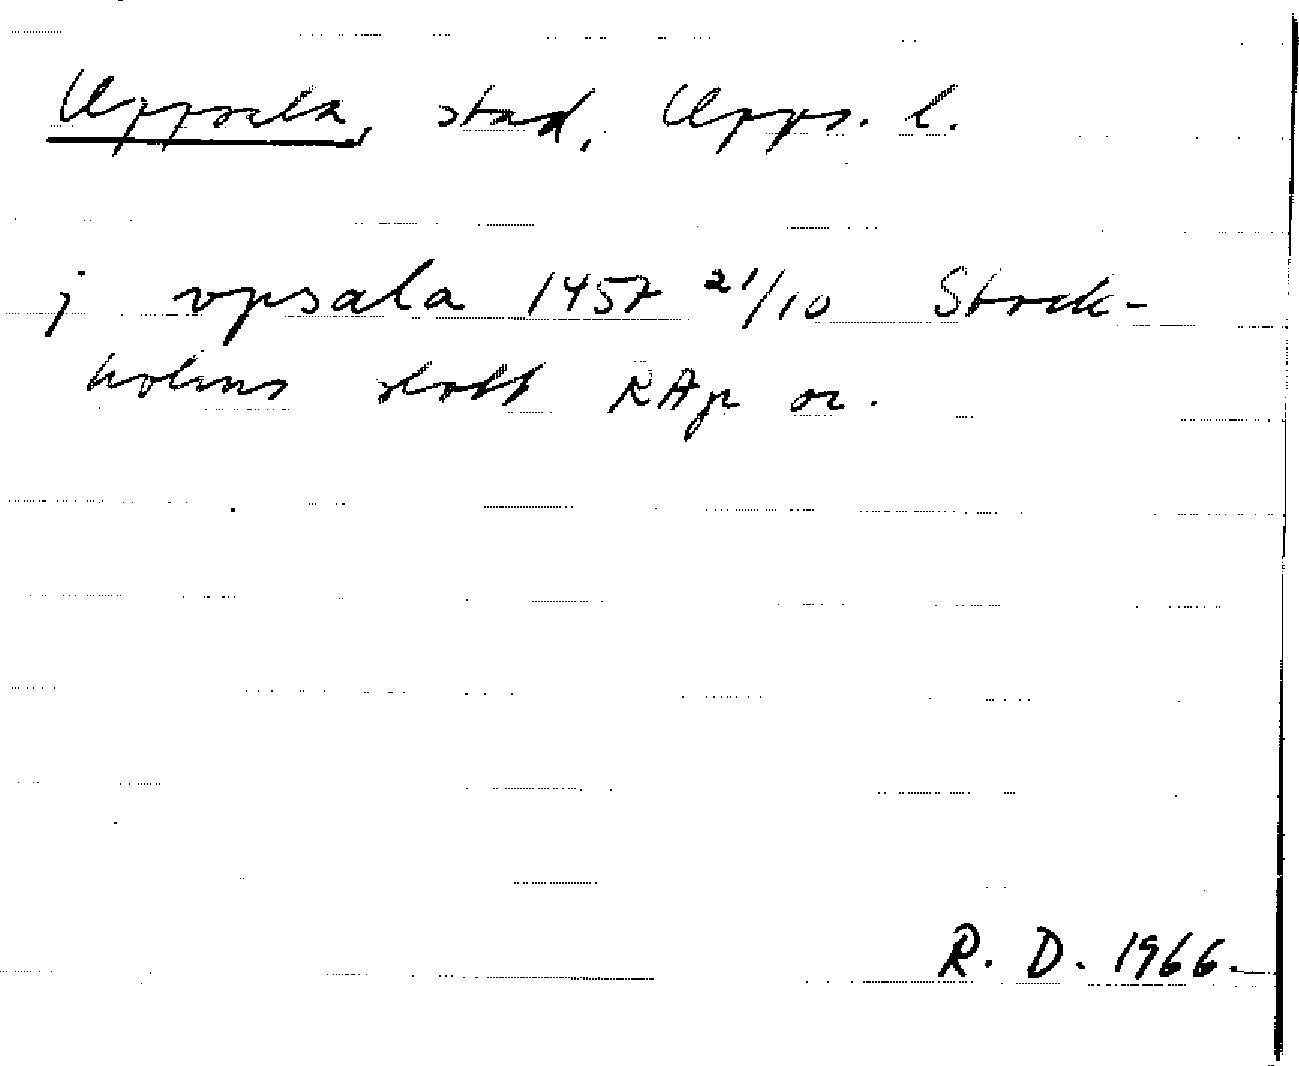 Uppsala, stad, Upps. l.
j vpsala 1457 21/10 Stock-
holms slott RAp or.
R. D. 1966.